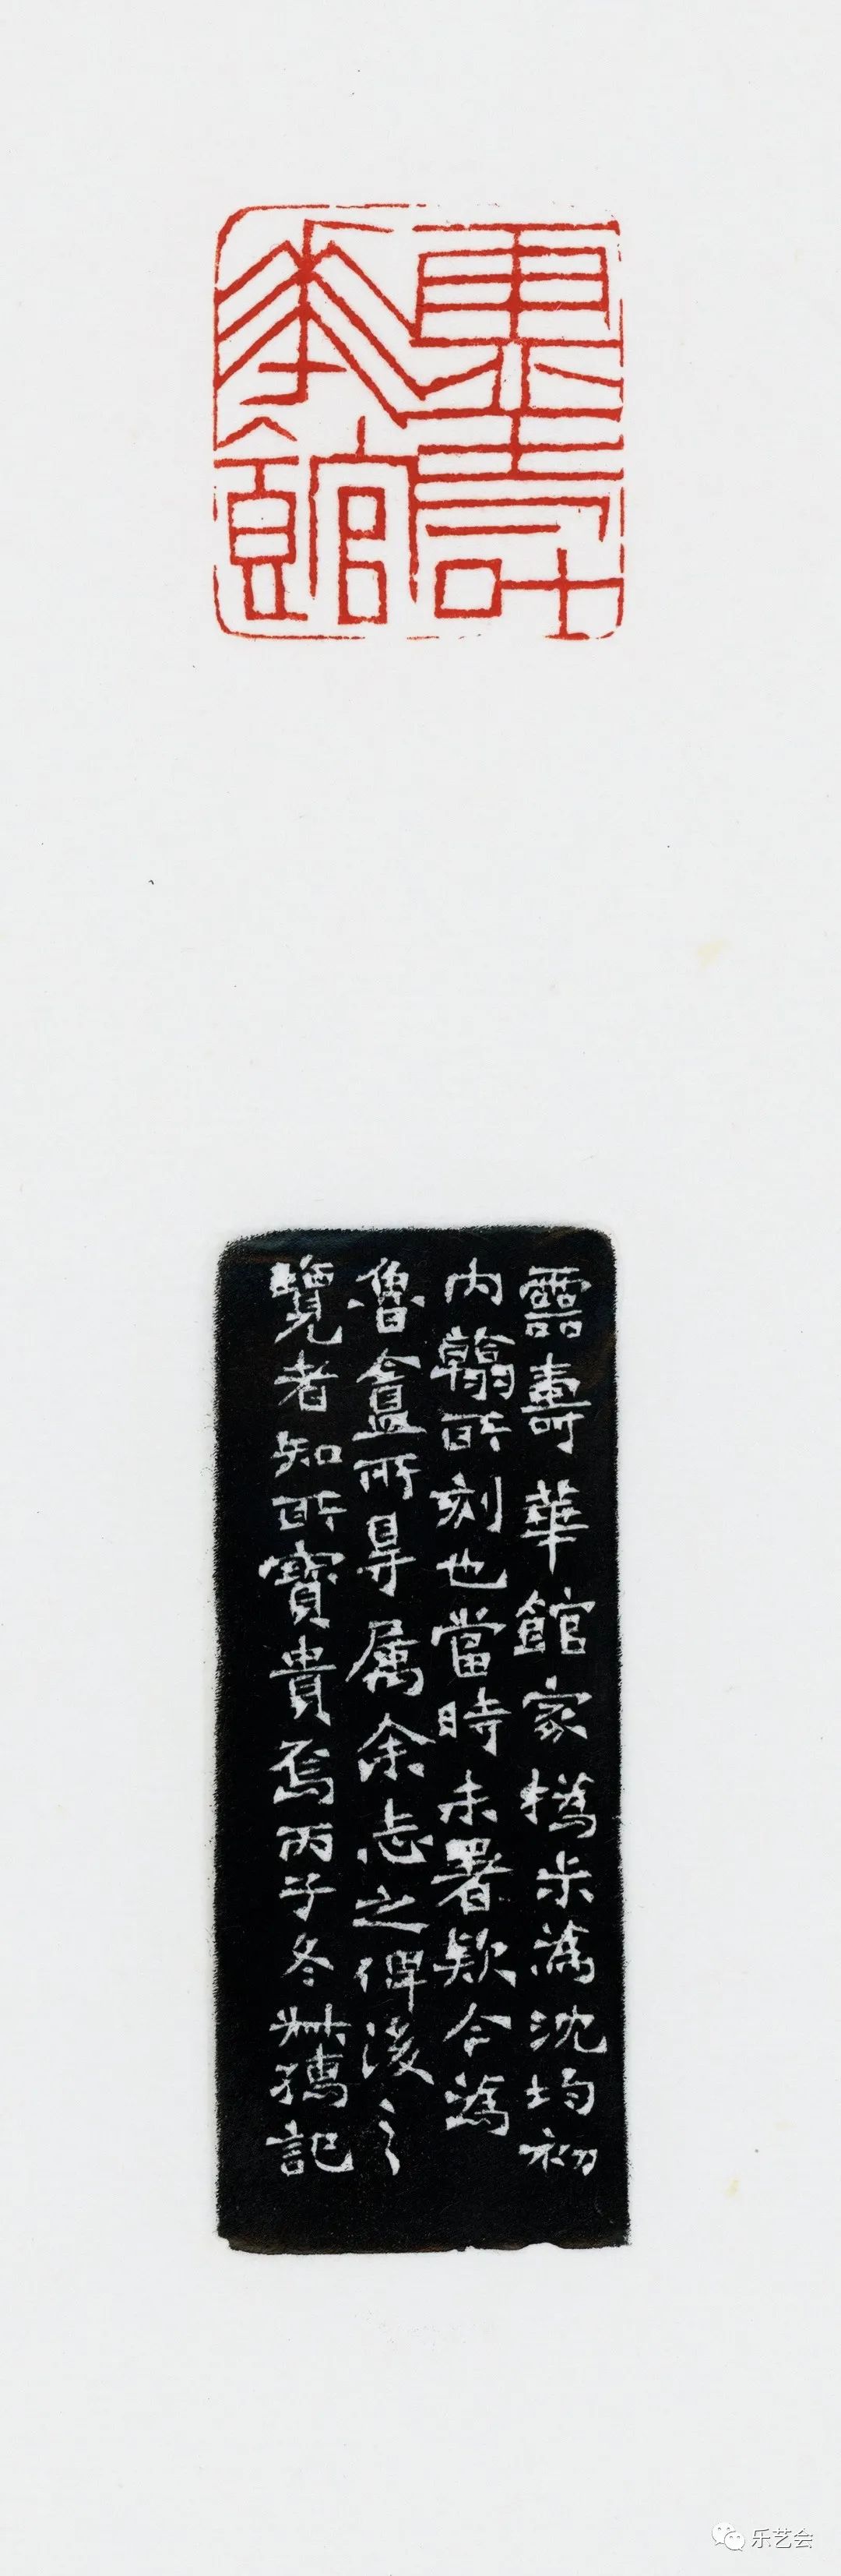 靈壽
華館
霝壽華館家撝尗為沈均初
内翰所刻也當時未署款今為
魯盦所㝵属余志之俾後之
覽者知所寶貴焉丙子冬叔孺記
乐艺会